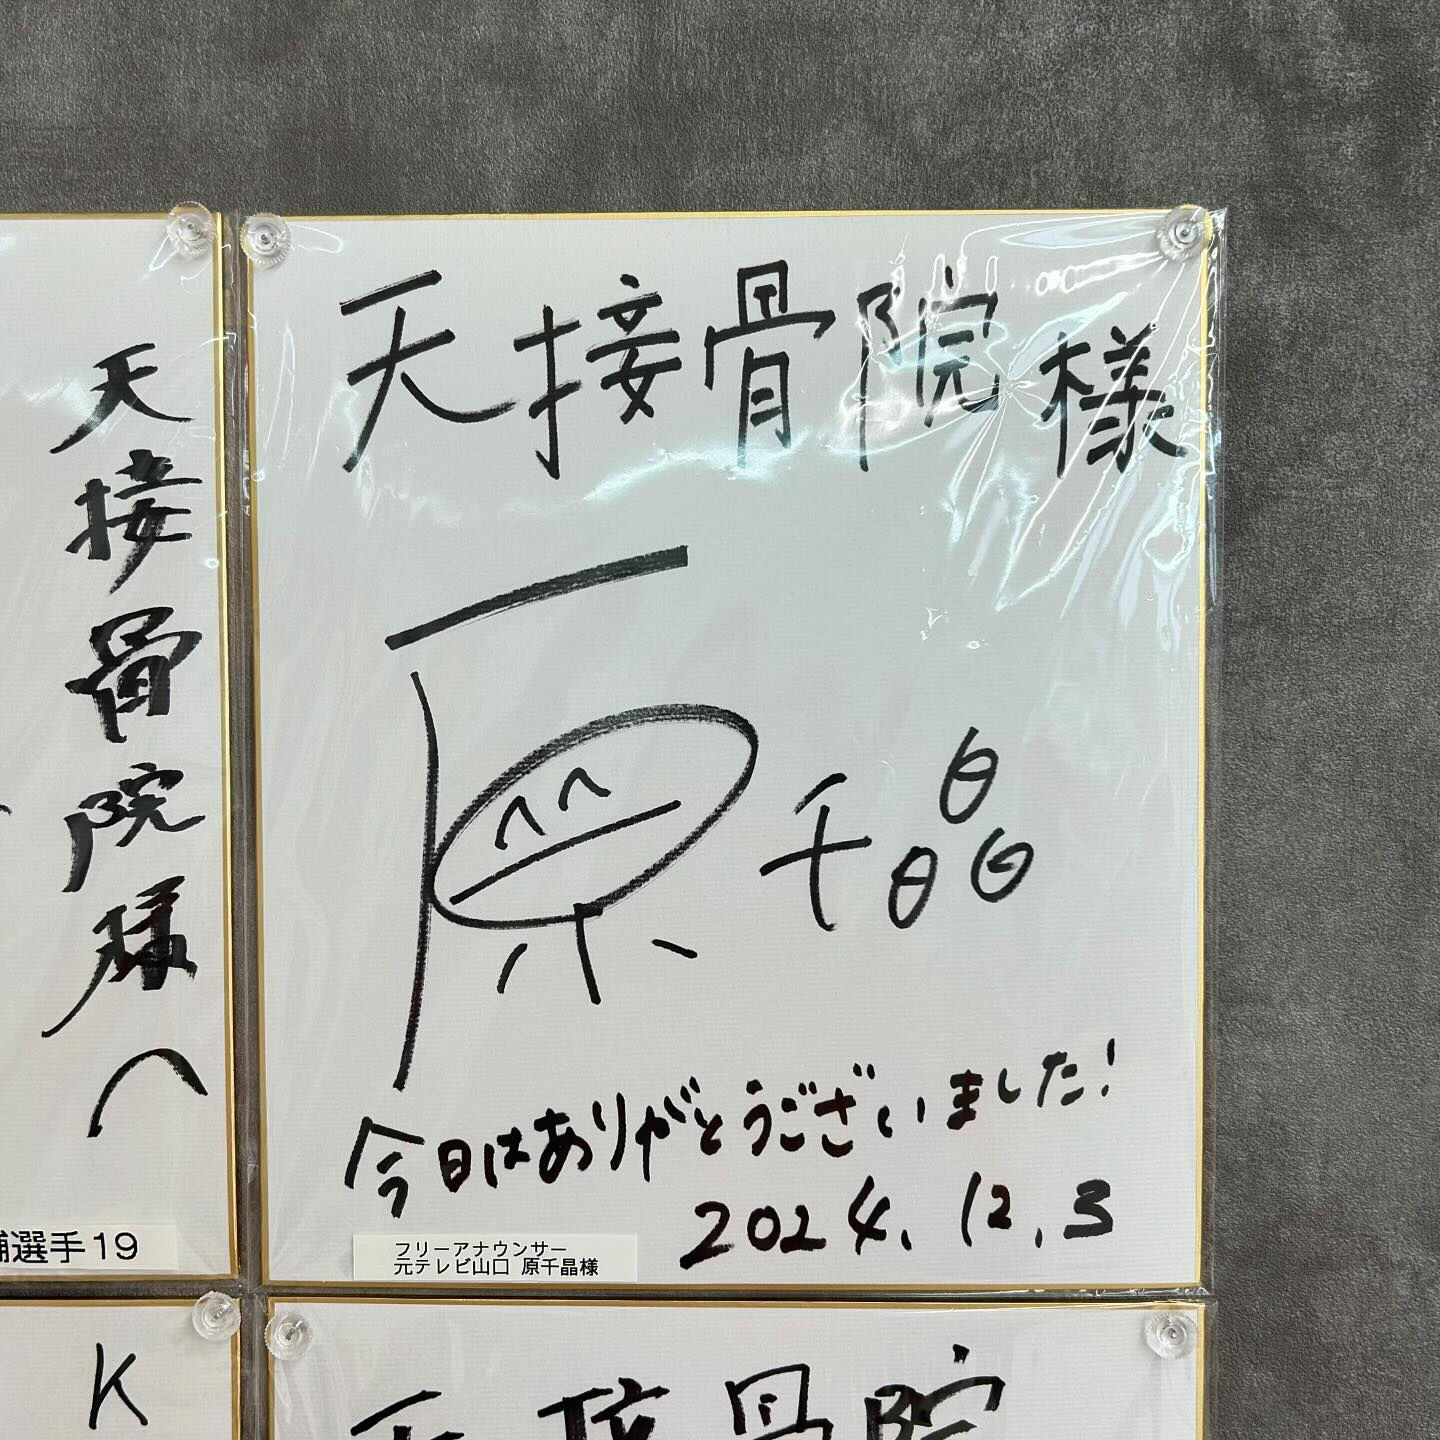 天接骨院様
原千晶
今日はありがとうございました!
2024.12.3
フリーアナウンサー
元テレビ山口 原千晶様
天接骨院様へ
選手19
K
天接骨院